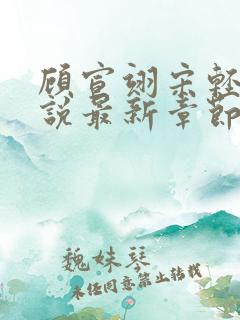 顾宣翊宋轻
说最新章节
魏妹琴
未经同意禁止转载